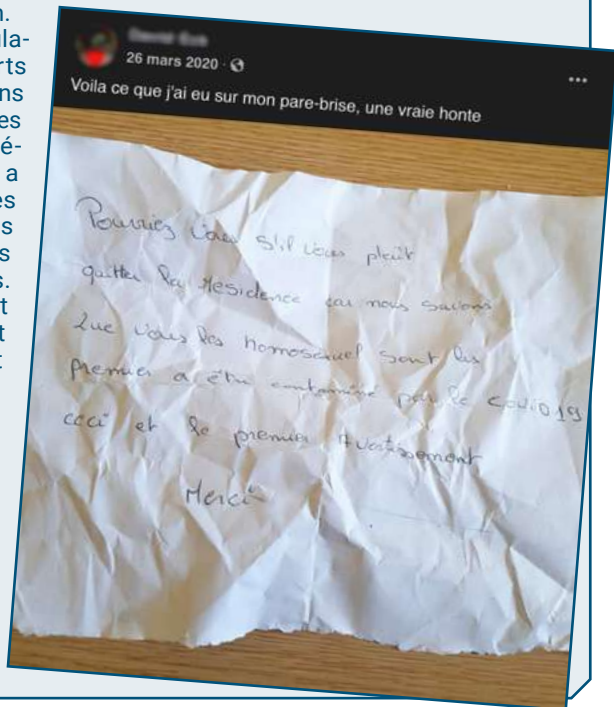 n.
ula-
rts
ns
es
é-
a
es
s
s
s.
t
t
t
26 mars 2020
Voila ce que j'ai eu sur mon pare-brise, une vraie honte
Pourriez Vous S'il vous plaît
quitter la résidence car nous savons
Que vous les homosexuel sont les
premier a être contaminé par le COVID19
ceci et le premier Avertissement
Merci